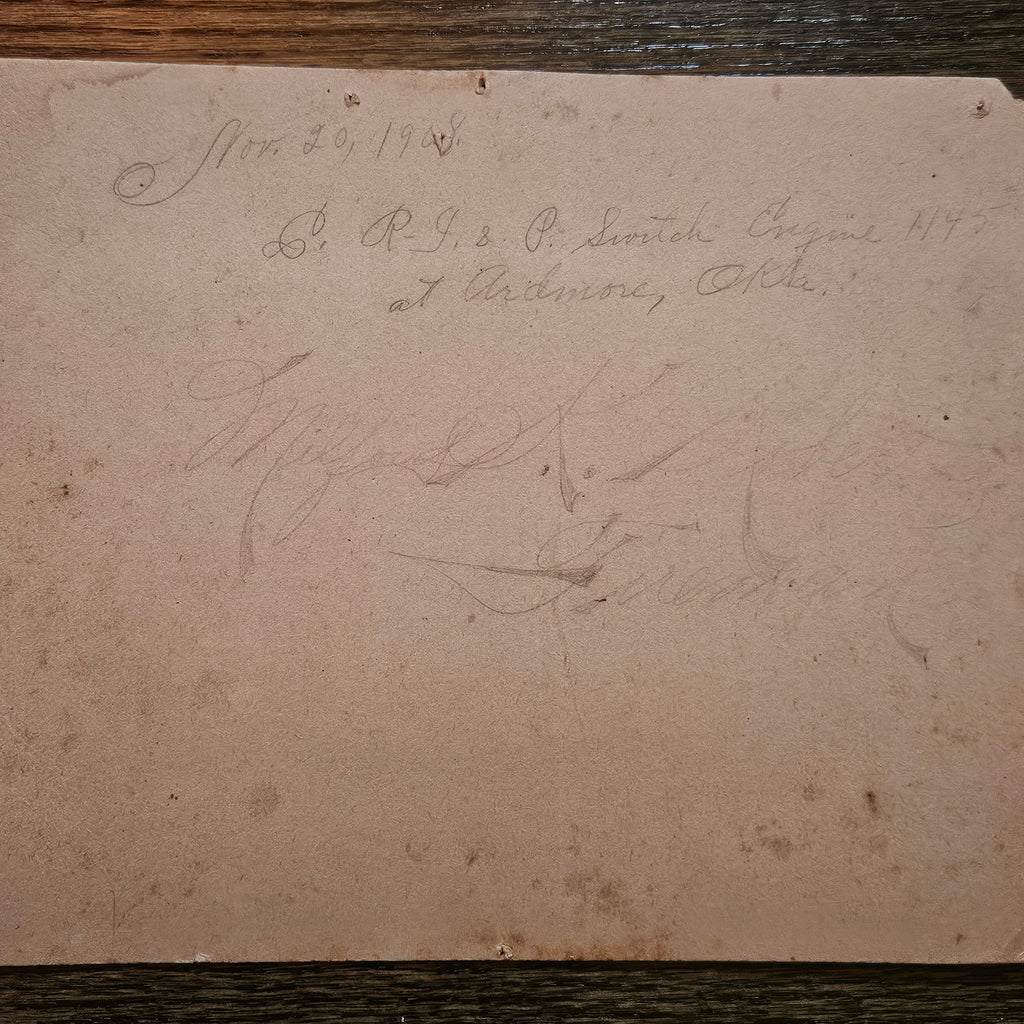 Nov. 20, 1908.
C. R. I. & P. Switch Engine 1145
at Ardmore, Okla.
Milford A.
Fireman